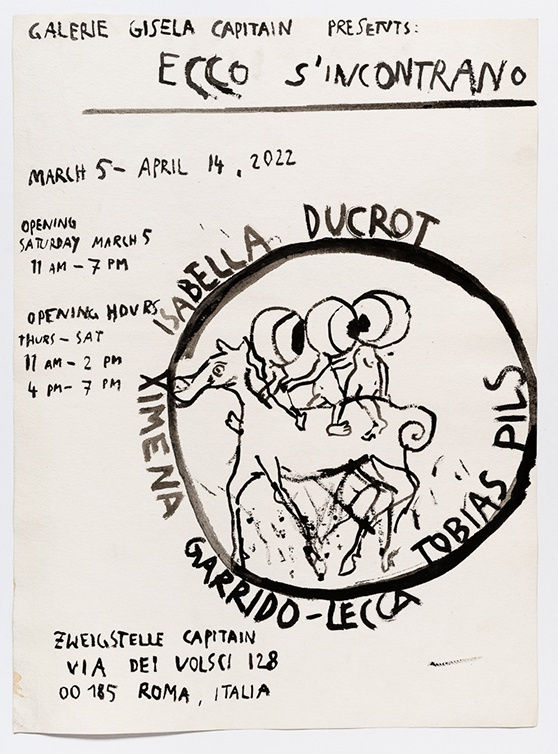 GALERIE GISELA CAPITAIN PRESENTS:
ECCO S'INCONTRANO
MARCH 5 - APRIL 14, 2022
OPENING
SATURDAY MARCH 5
11 AM - 7 PM
OPENING HOURS
THURS - SAT
11 AM - 2 PM
4 PM - 7 PM
ISABELLA DUCROT
TOBIAS PILS
XIMENA GARRIDO-LECCA
ZWEIGSTELLE CAPITAIN
VIA DEI VOLSCI 128
00185 ROMA, ITALIA